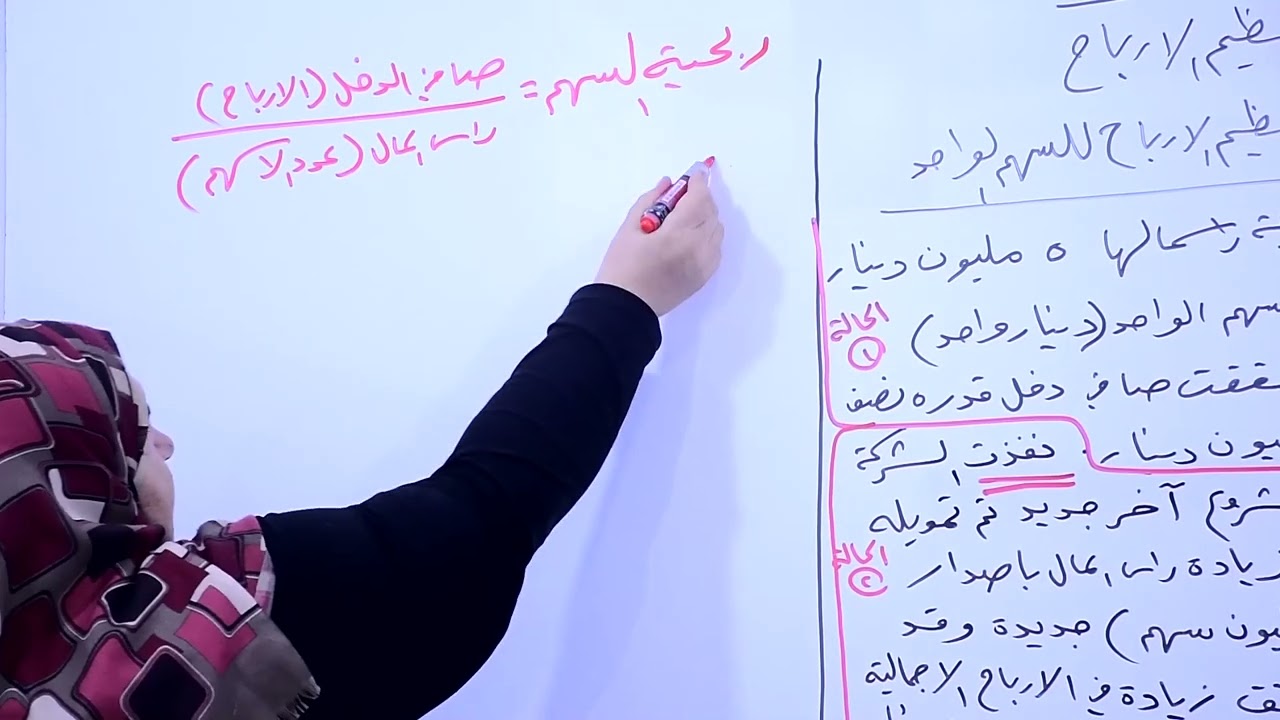 ربحية السهم = صافي الدخل (الارباح)
راس المال (عدد الاسهم)
الارباح
الارباح للسهم الواحد
راسمالها ٥ مليون دينار
الواحد (دينار واحد)
الحالة ١
صافي دخل قدره نصف
دينار. نفذت الشركة
آخر جديد تم تمويله
الحالة ٢
راس المال باصدار
سهم) جديدة وقد
زيادة في الارباح الاجمالية